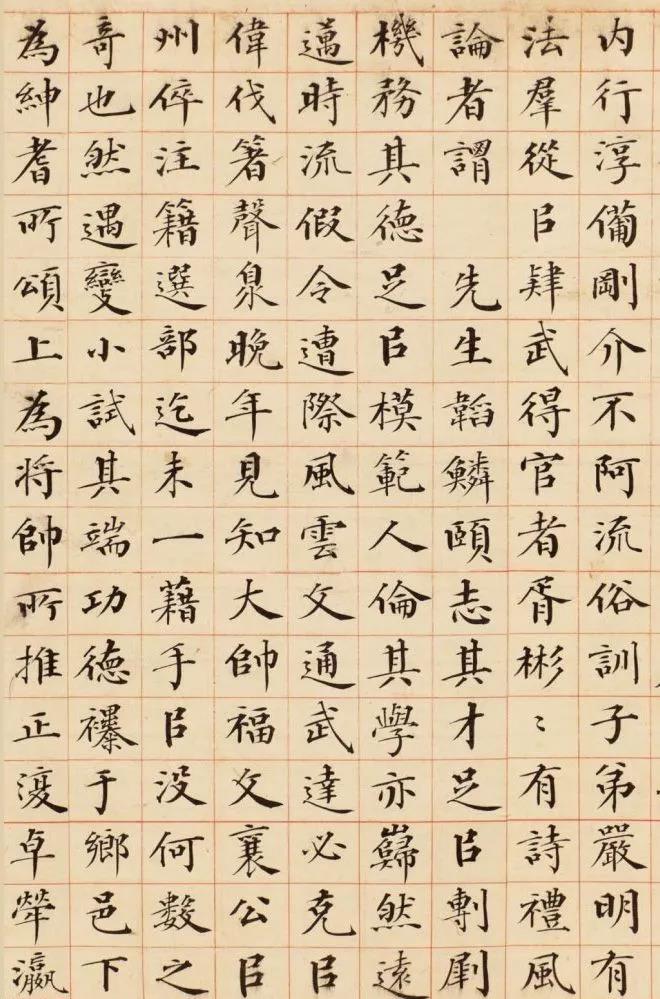 内行淳僃剛介不阿流俗訓子弟嚴明有
法羣從㠯肄武得官者胥彬〻有詩禮風
論者謂 先生韜鱗頤志其才足㠯剸劇
機務其德足㠯模範人倫其學亦巋然遠
邁時流假令遭際風雲文通武達必克㠯
偉伐箸聲臮晚年見知大帥福文襄公㠯
州倅注籍選部迄未一藉手㠯没何數之
奇也然遇變小試其端功德襮于鄉邑下
為紳耆所頌上為將帥所推正復卓犖瀛